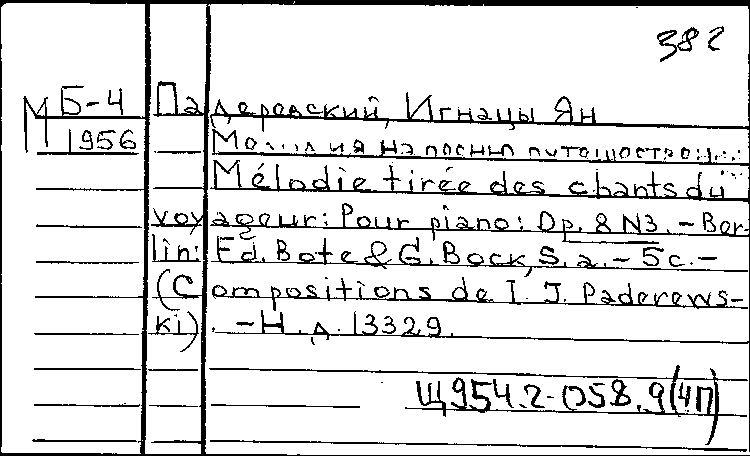 382
М Б-4 Падеревский, Игнацы Ян
1956
Mélodie tirée des chants du
voyageur: Pour piano: Op. 8 N3. - Ber-
lin: Ed. Bote & G. Bock, S. a. - 5 с. -
(Compositions de I. J. Paderews-
ki). - Н. д. 13329.
Щ954.2-058.9(4П)